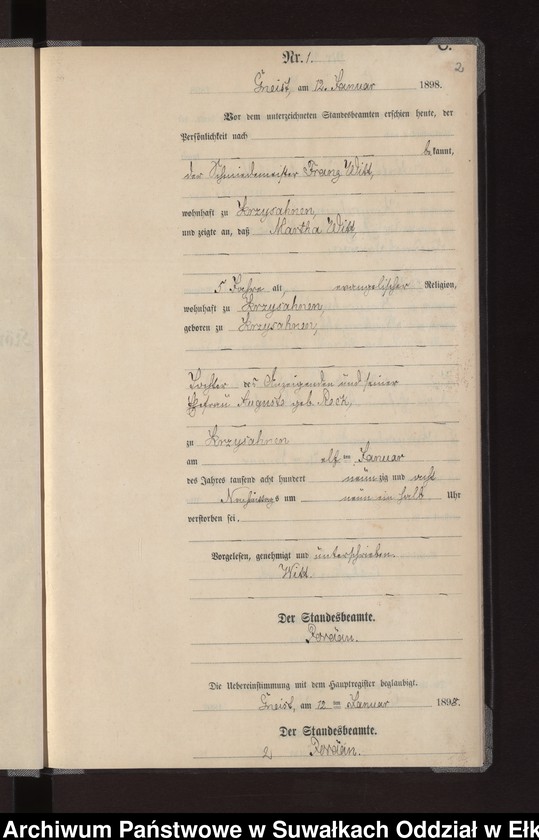 C.
2
Nr. 1.
Gneist, am 12. Januar 1898.
Vor dem unterzeichneten Standesbeamten erschien heute, der
Persönlichkeit nach
bekannt,
der Schmiedemeister Franz Witt,
wohnhaft zu Krzysahnen,
und zeigte an, daß Martha Witt,
5 Jahre alt, evangelischer Religion,
wohnhaft zu Krzysahnen,
geboren zu Krzysahnen,
Tochter des Anzeigenden und seiner
Ehefrau Auguste geb. Rock,
zu Krzysahnen
am elften Januar
des Jahres tausend acht hundert neunzig und acht
Nachmittags um neun ein halb Uhr
verstorben sei.
Vorgelesen, genehmigt und unterschrieben.
Witt.
Der Standesbeamte.
Die Uebereinstimmung mit dem Hauptregister beglaubigt.
Gneist, am 12ten Januar 1898.
Der Standesbeamte.
2
Archiwum Państwowe w Suwałkach Oddział w Ełk